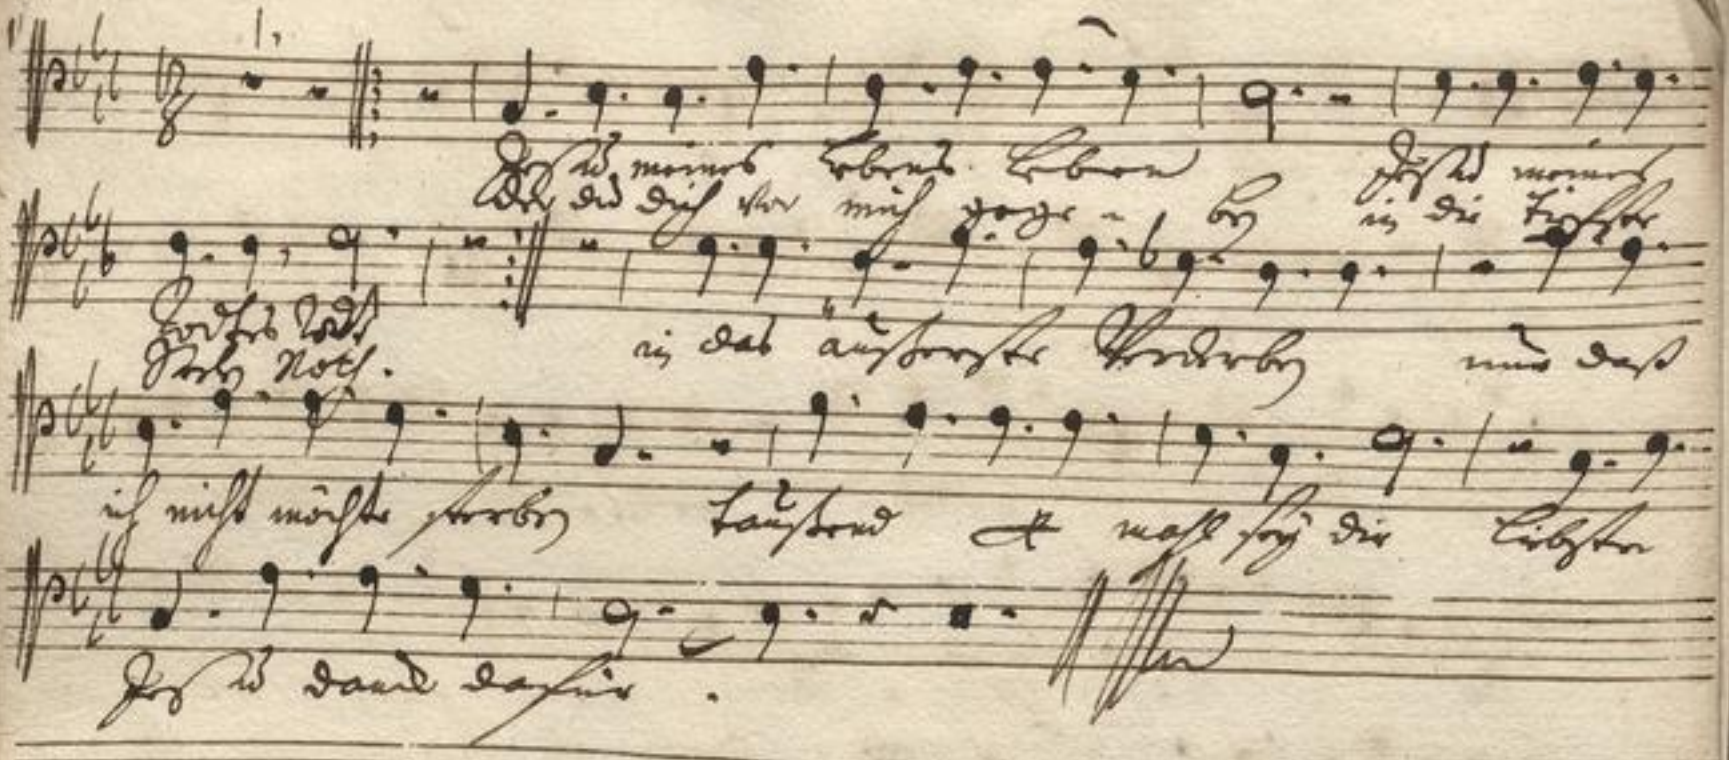 Jesu meines Lebens Leben Jesu meines
der du dich vor mich gege - ben in die tieffste
Todtes Todt
Seelen Noth.
in das äußerste Verderben nur daß
ich nicht möchte sterben taußend mahl seÿ dir liebster
Jesu danck dafür.